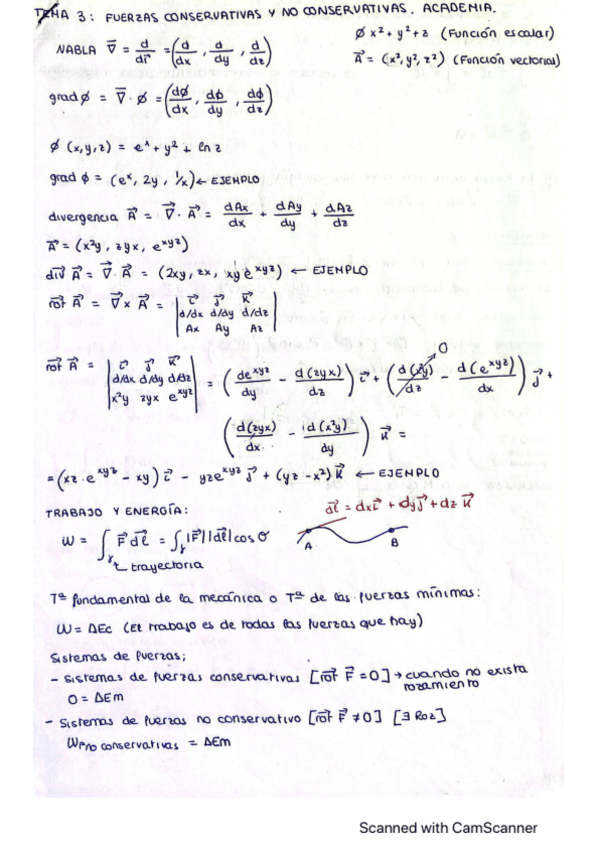 TEMA 3: FUERZAS CONSERVATIVAS Y NO CONSERVATIVAS. ACADEMIA.
NABLA ∇⃗ = d/dr⃗ = (d/dx, d/dy, d/dz)
Ø x² + y² + z (Función escalar)
A⃗ = (x², y², z²) (Función vectorial)
grad Ø = ∇⃗ · Ø = (dØ/dx, dØ/dy, dØ/dz)
Ø (x,y,z) = eˣ + y² + ln z
grad Ø = (eˣ, 2y, 1/x) ← EJEMPLO
divergencia A⃗ = ∇⃗ · A⃗ = dAx/dx + dAy/dy + dAz/dz
A⃗ = (x²y, zyx, e^xyz)
div A⃗ = ∇⃗ · A⃗ = (2xy, zx, xy e^xyz) ← EJEMPLO
rot A⃗ = ∇⃗ x A⃗ = | i⃗ j⃗ k⃗ |
| d/dx d/dy d/dz |
| Ax Ay Az |
rot A⃗ = | i⃗ j⃗ k⃗ | d/dx d/dy d/dz | x²y zyx e^xyz | = (de^xyz/dy - d(zyx)/dz) i⃗ + (d(x²y)/dz - d(e^xyz)/dx) j⃗ +
0
(d(zyx)/dx - d(x²y)/dy) k⃗ =
= (xz · e^xyz - xy) i⃗ - yze^xyz j⃗ + (yz - x²) k⃗ ← EJEMPLO
TRABAJO Y ENERGÍA:
dl⃗ = dx i⃗ + dy j⃗ + dz k⃗
W = ∫γ F⃗ dl⃗ = ∫γ |F⃗| |dl⃗| cos θ
A B
trayectoria
Tª fundamental de la mecánica o Tª de las fuerzas mínimas:
W = ΔEc (El trabajo es de todas las fuerzas que hay)
Sistemas de fuerzas;
- Sistemas de fuerzas conservativas [rot F⃗ = 0] → cuando no exista
rozamiento
0 = ΔEm
- Sistemas de fuerzas no conservativo [rot F⃗ ≠ 0] [∃ Roz]
W Fno conservativas = ΔEm
Scanned with CamScanner